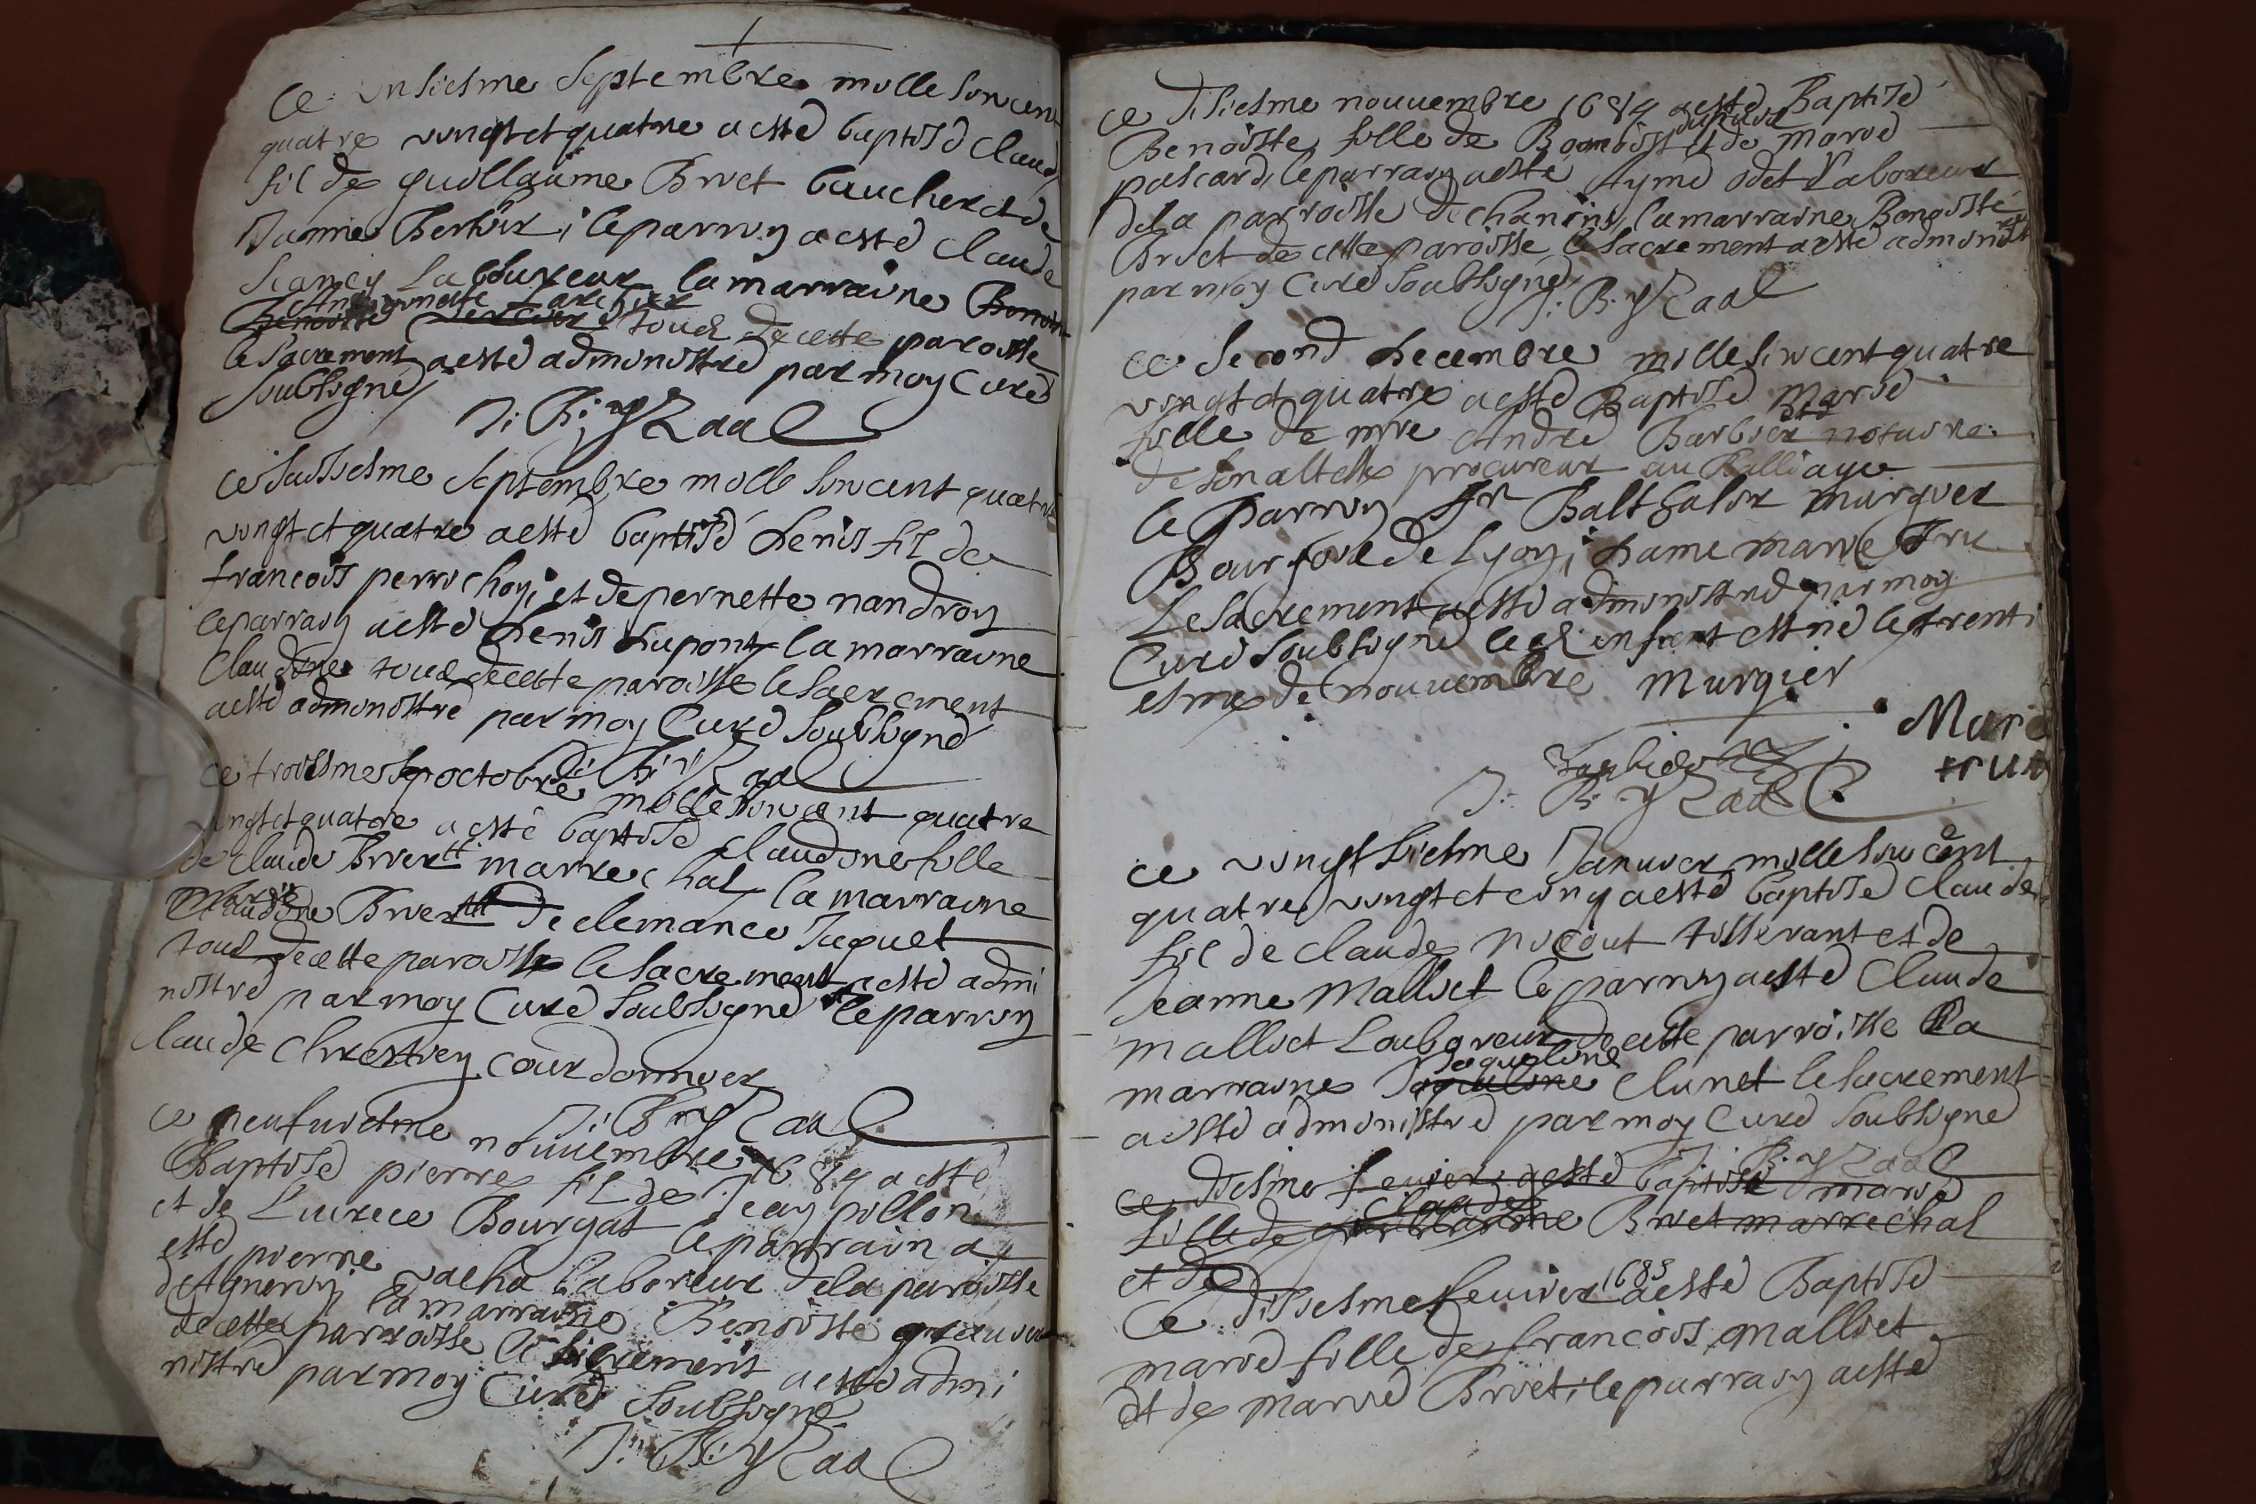 Ce onsiesme septembre mille six cent
quatre vingt et quatre a esté baptisé Claude
fil de guillaume Brvet boucher et de
Janne Berbier ; le parrin a esté Claude
Laboureur la marraine
Anthoinette tous de cette paroisse
le sacrement a esté administré par moy Curé
soubsigné
J: B: yzaal
septembre mille six cent quatre
vingt et quatre a esté baptisé denis fil de
francois perrochon, et de pernette nandron
le parrain a esté denis dupont la marraine
Claudine tous de cette paroisse le sacrement
a esté administré par moy Curé soubsigné
J: B: yzaal
ce troisiesme octobre mille six cent quatre
vingt et quatre a esté baptisé claudine fille
de claude Brvet marrechal la marraine
Brvet de clemance Jaquet
tous de cette paroisse le sacrement a esté admi
nistré par moy Curé soubsigné le parrin
claude chrestien courdonnier
J: B: yzaal
ce neufviesme nouvembre 1684 a esté
Baptisé pierre fil de Jean pollon
et de Lucrece Bourgat le parrain a
esté pierre vacha laboreur de la paroisse
la marraine Benoiste
de cette parroisse le sacrement a esté admi
nistré par moy Curé soubsigné
J: B: yzaal
ce disiesme nouvembre 1684 a esté Baptisé
Benoiste fille de Benoist et de marie
pascard, le parrain a esté Aymé odet Laboreur
de la parroisse de chanins, la marraine Benoiste
Brvet de cette paroisse le sacrement a esté administré
par moy Curé soubsigné
J: B: yzaal
ce second decembre mille six cent quatre
vingt et quatre a esté Baptisé marie
fille de mre André Barbier notaire
de son altesse procureur au Balliage
le parrin Sr Balthasar murgier
Bourgois de Lyon, dame marie tru
Le sacrement a esté administré par moy
Curé soubsigné led enfant est né le trenti
esme de nouvembre murgier
Marie
Barbier
J: B: yzaal
ce vingt siesme Janvier mille six cent
quatre vingt et cinq a esté baptisé claude
fil de claude tisserant et de
Jeanne Malliet le parrin a esté Claude
malliet Laboureur de cette parroisse La
marraine Jaqueline clunet le sacrement
a esté administré par moy Curé soubsigné
J: B: yzaal
ce disiesme fevrier a esté baptisé marie
fille de claude Brvet marrechal
et de
Ce disiesme fevrier 1685 a esté Baptisé
marie fille de francois malliet
et de marie Brvet ; le parrain a esté